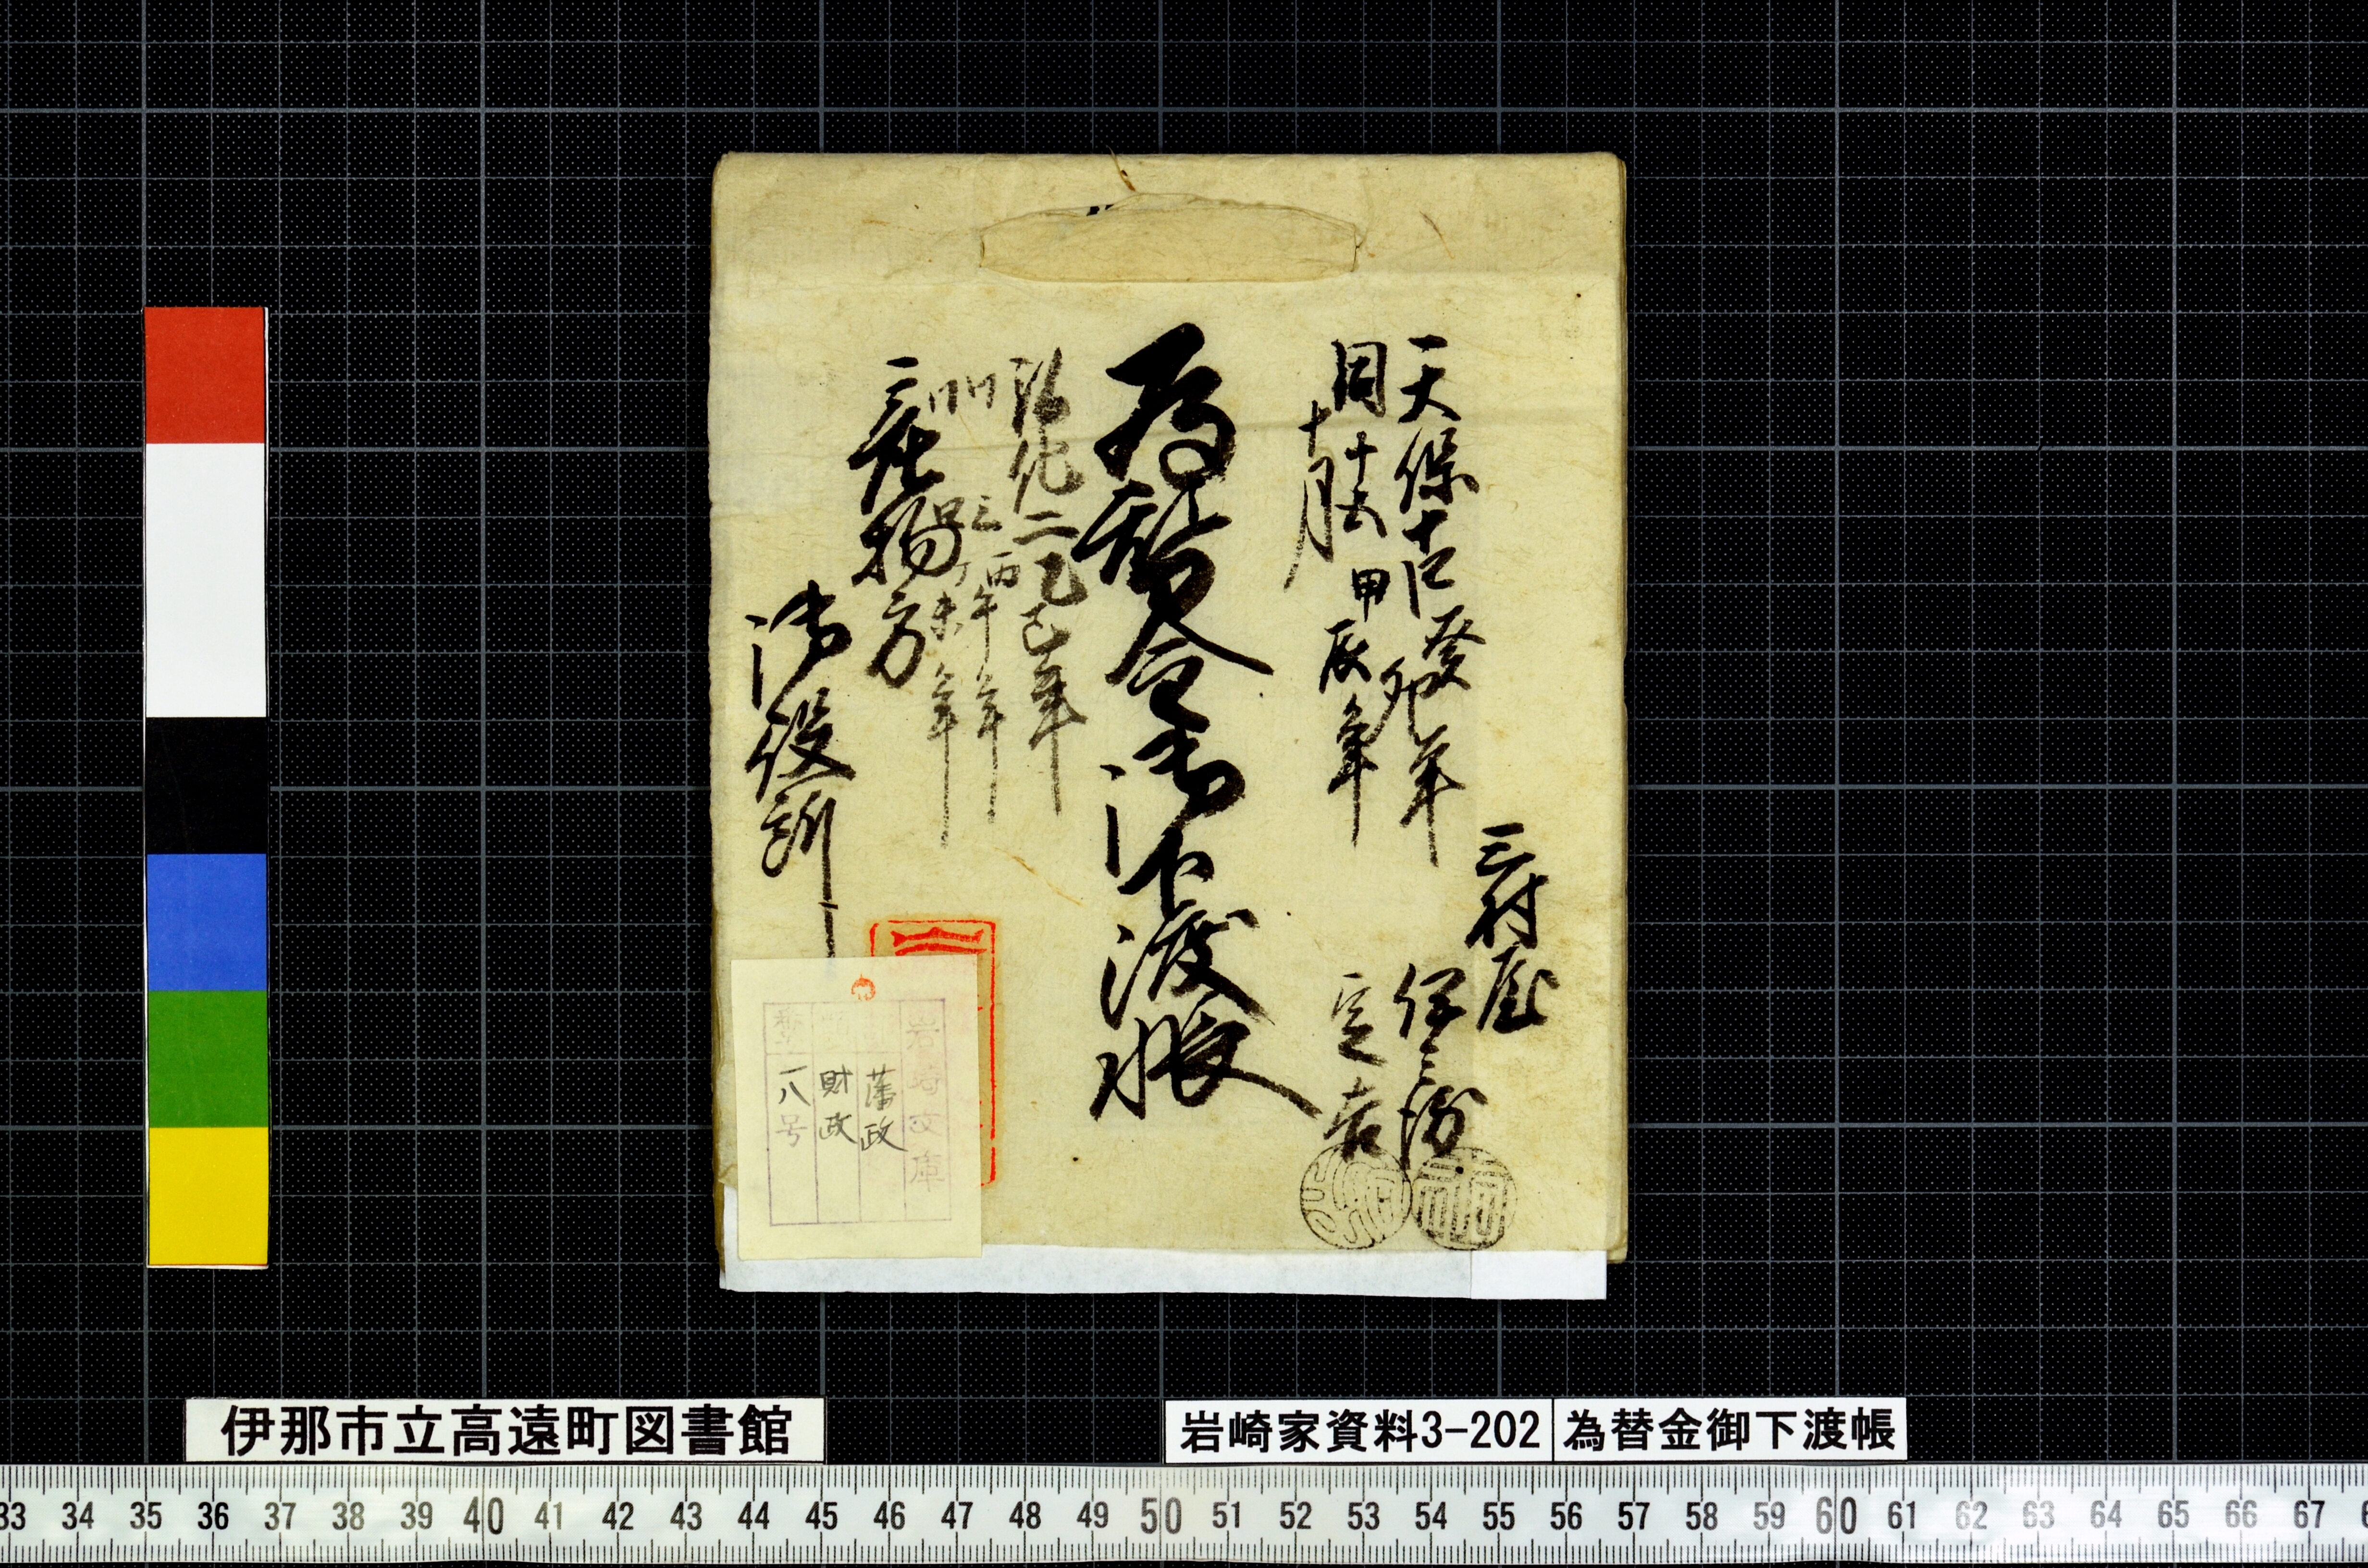 三村屋
伊三郎
定吉
天保十四癸卯年
同十五甲辰年
十月
為替金御下渡帳
弘化二乙巳年
同三丙午年
同四丁未年
産物方
御役所
岩崎文庫
藩政
財政
一八号
伊那市立高遠町図書館
岩崎家資料3-202
為替金御下渡帳
33 34 35 36 37 38 39 40 41 42 43 44 45 46 47 48 49 50 51 52 53 54 55 56 57 58 59 60 61 62 63 64 65 66 67